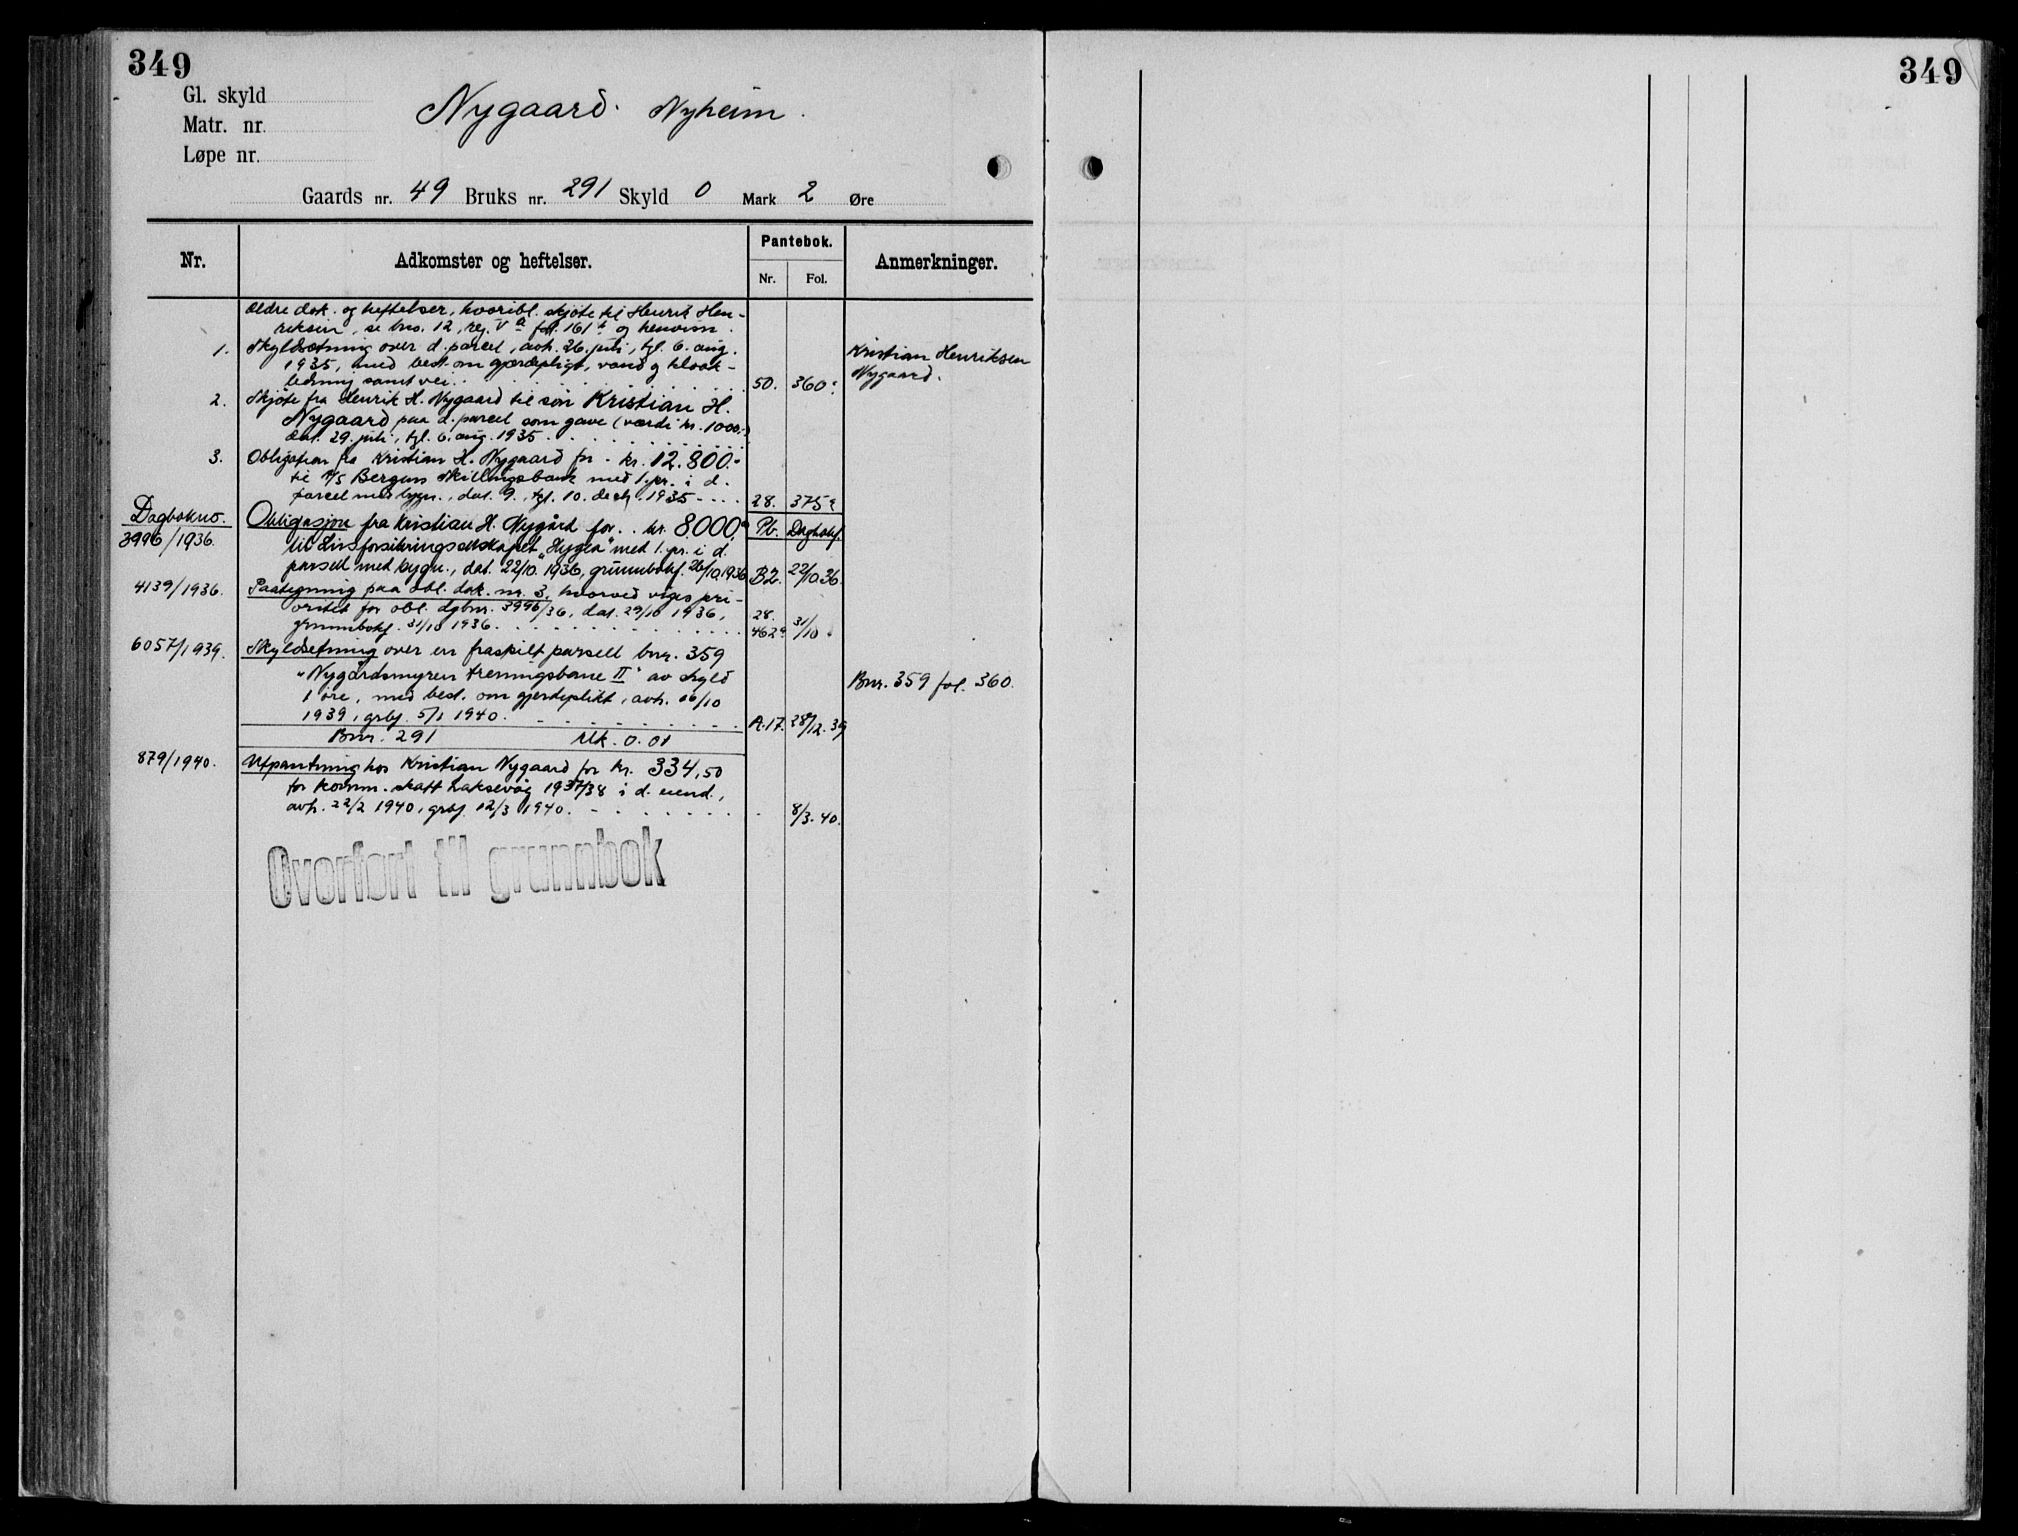 349
349
Gl. skyld
Matr. nr.
Løpe nr.
Nygaard. Nyheim.
Gaards nr. 49 Bruks nr. 291 Skyld 0 Mark 2 Øre
Nr. Adkomster og heftelser. Pantebok. Anmerkninger.
Nr. Fol.
Ældre dok. og heftelser, hvoribl. skjøte til Henrik Hen-
riksen, se bno. 12, reg. V a fol. 161 b og henvisn.
1. Skyldsætning over d. parcel, avh. 26. juli, tgl. 6. aug.
1935, med best. om gjærdepligt, vand og kloak-
ledning samt vei. 50. 360.
Kristian Henriksen
Nygaard.
2. Skjøte fra Henrik H. Nygaard til søn Kristian H.
Nygaard paa d. parcel som gave (værdi kr. 1000.-)
dat. 29. juli, tgl. 6. aug. 1935.
3. Obligation fra Kristian H. Nygaard for kr. 12.800.-
til A/S Bergens Skillingsbank med 1. pr. i d.
parcel med bygn., dat. 9., tgl. 10. decbr. 1935 28. 375
Dagboknr. Obligasjon fra Kristian H. Nygård for kr. 8000.- Pb. Dagbokf.
3996/1936. til Livsforsikringsselskapet "Hygea" med 1. pr. i d.
parsell med bygn., dat. 22/10. 1936, grunnbokf. 26/10.1936 B2. 22/10 36.
4139/1936. Paategning paa obl. dok. nr. 3, hvorved viges pri-
oritet for obl. dgbnr. 3996/36, dat. 29/10 1936, 28.
grunnbokf. 31/10 1936. 462 31/10
6057/1939. Skyldsetning over en fraskilt parsell bnr. 359
"Nygårdsmyren treningsbane II" av skyld
1 øre, med best. om gjerdeplikt, avh. 06/10
1939, grbf. 5/1 1940. A.17. 28/12.39
Bnr. 359 fol. 360.
Bnr. 291 Mk. 0.01
879/1940. Utpantning hos Kristian Nygaard for kr. 334,50
for komm. skatt Laksevåg 1937/38 i d. eiend.,
avh. 22/2 1940, grbf. 12/3 1940. 8/3.40.
Overført til grunnbok